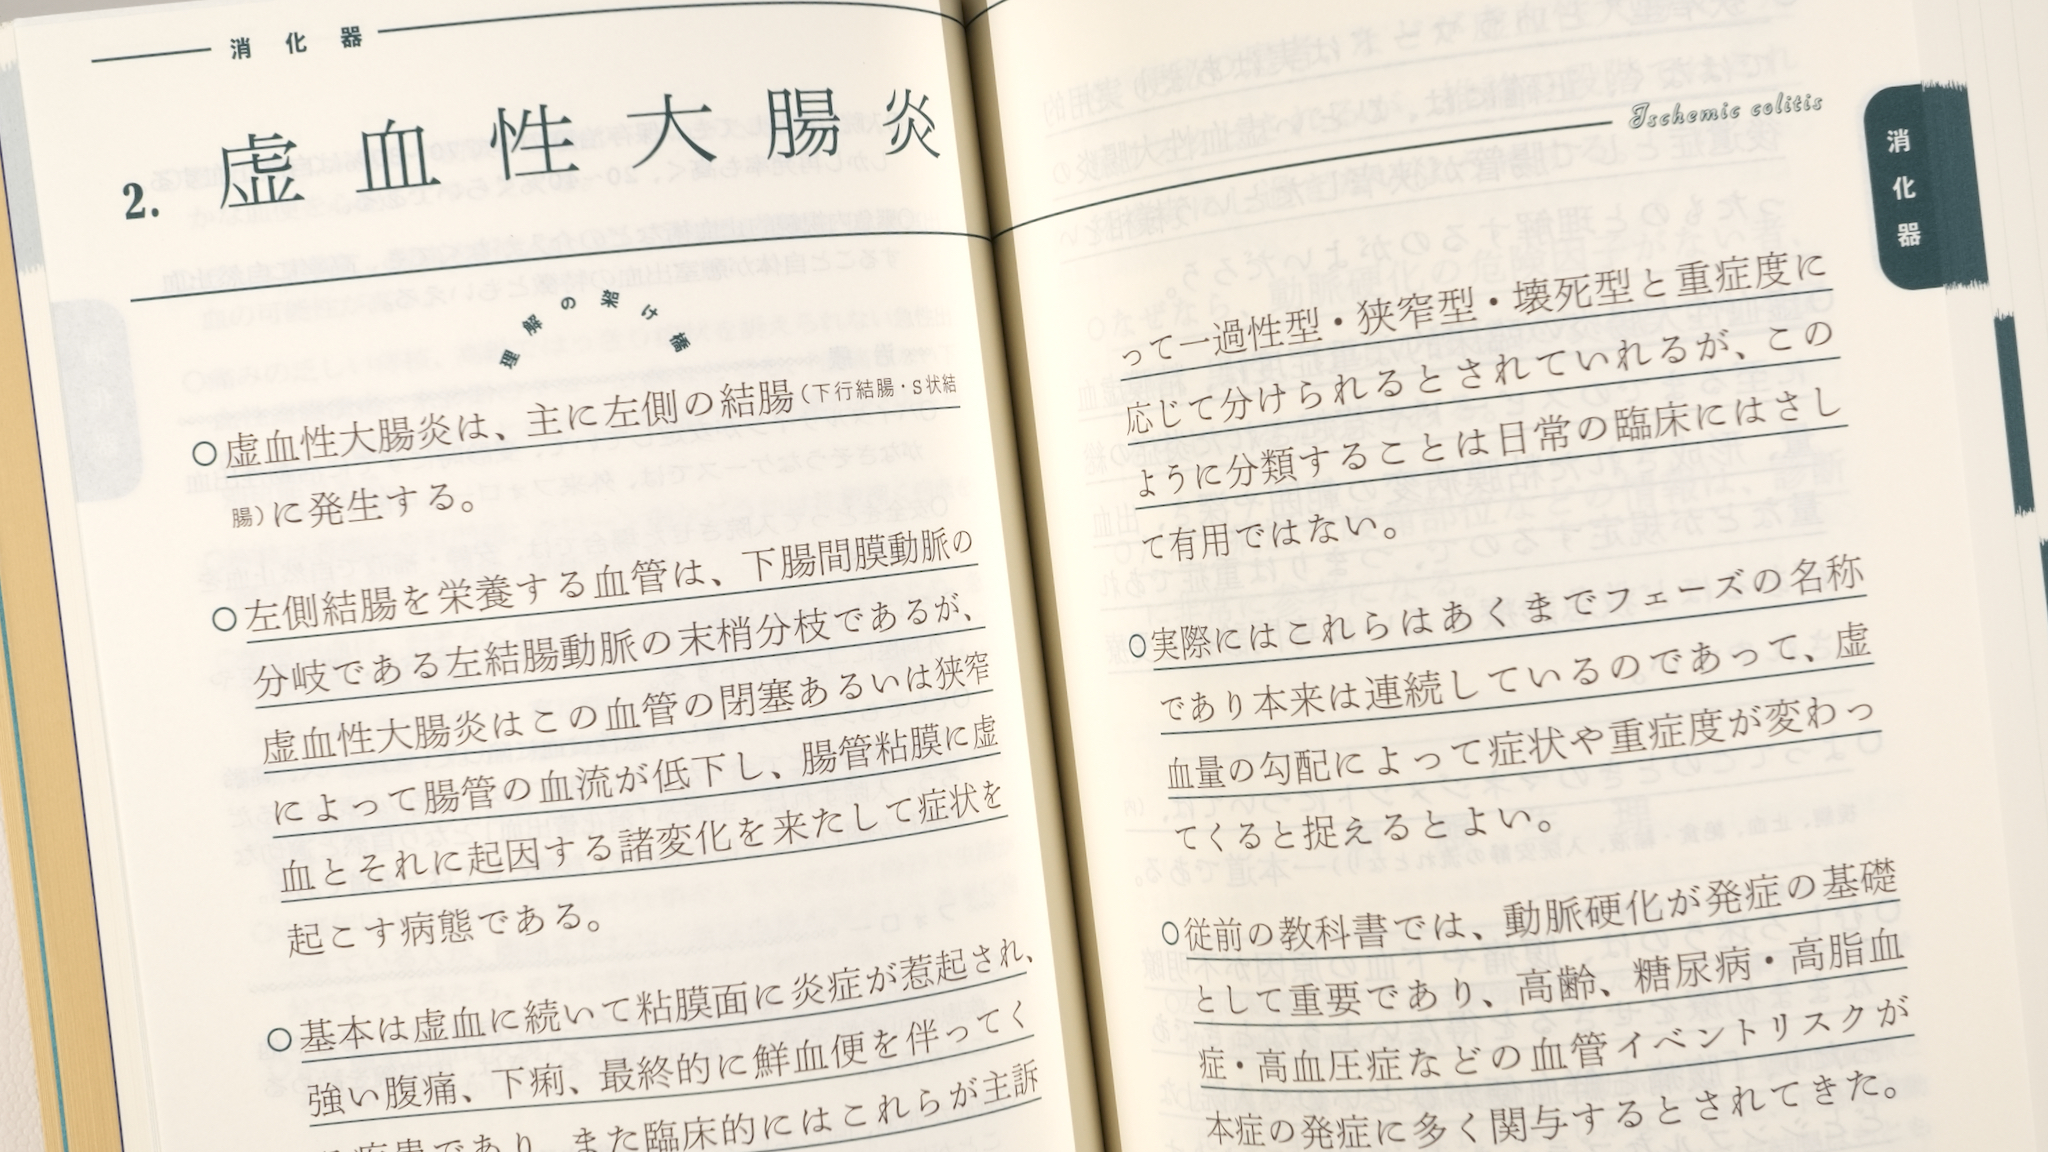 消化器
2. 虚血性大腸炎
理解の架け橋
○虚血性大腸炎は、主に左側の結腸(下行結腸・S状結
腸)に発生する。
○左側結腸を栄養する血管は、下腸間膜動脈の
分岐である左結腸動脈の末梢分枝であるが、
虚血性大腸炎はこの血管の閉塞あるいは狭窄
によって腸管の血流が低下し、腸管粘膜に虚
血とそれに起因する諸変化を来たして症状を
起こす病態である。
○基本は虚血に続いて粘膜面に炎症が惹起され、
強い腹痛、下痢、最終的に鮮血便を伴ってく
疾患であり、また臨床的にはこれらが主訴
Ischemic colitis
消化器
って一過性型・狭窄型・壊死型と重症度に
応じて分けられるとされていれるが、この
ように分類することは日常の臨床にはさし
て有用ではない。
○実際にはこれらはあくまでフェーズの名称
であり本来は連続しているのであって、虚
血量の勾配によって症状や重症度が変わっ
てくると捉えるとよい。
○従前の教科書では、動脈硬化が発症の基礎
として重要であり、高齢、糖尿病・高脂血
症・高血圧症などの血管イベントリスクが
本症の発症に多く関与するとされてきた。